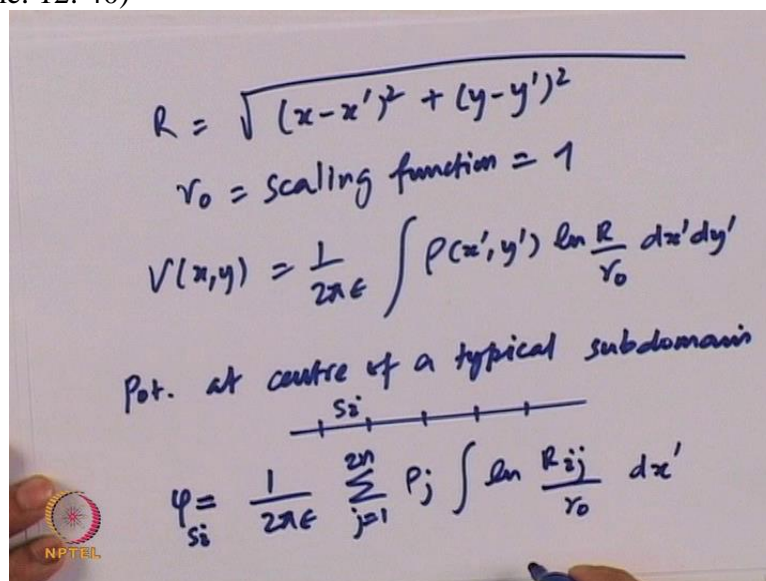 ne: 12: 40)
R = √(x-x')² + (y-y')²
r₀ = scaling function = 1
V(x,y) = 1/2πε ∫ ρ(x',y') ln R/r₀ dx'dy'
Pot. at centre of a typical subdomain
Si
φSi = 1/2πε 2n∑j=1 ρj ∫ ln Rij/r₀ dx'
NPTEL